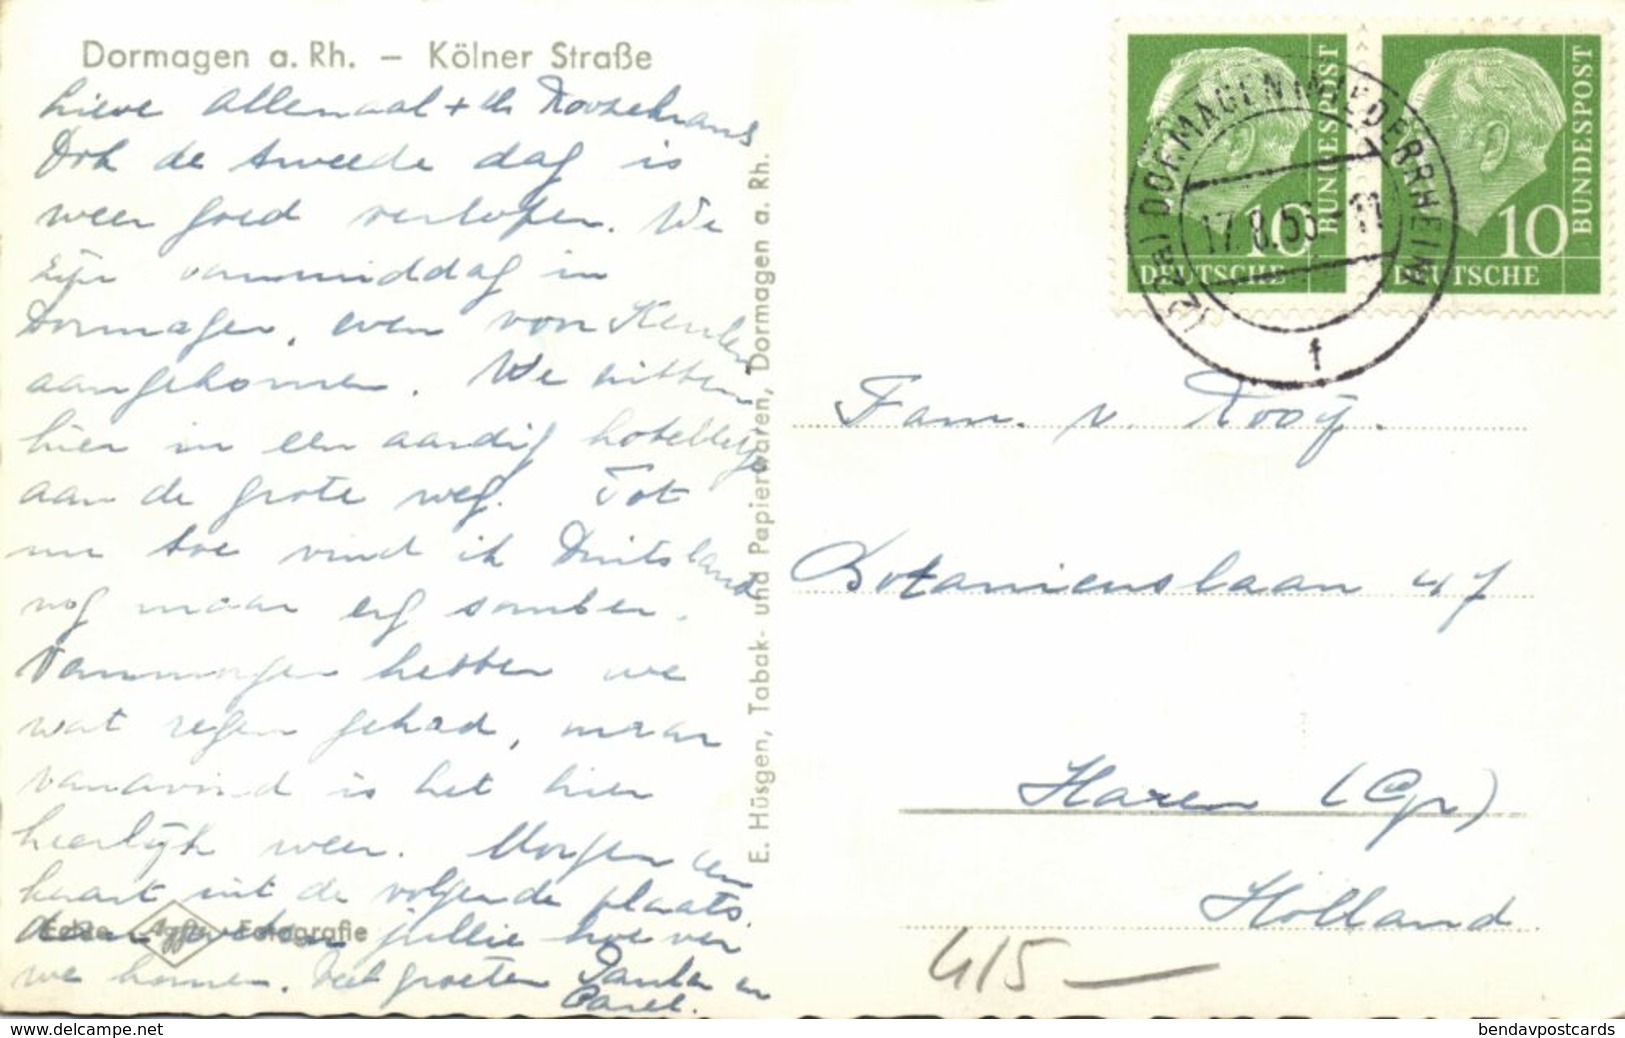 Dormagen a. Rh. – Kölner Straße
Lieve Allemaal +
Ook de tweede dag is
weer goed verlopen. We
zijn vanmiddag in
Dormagen, even von Keulen
aangekomen. We zitten
hier in een aardig hotelletje
aan de grote weg. Tot
nu toe vind ik Duitsland
nog maar erg somber.
Vanmorgen hebben we
wat regen gehad, maar
vanavond is het hier
heerlijk weer. Morgen een
kaart uit de volgende plaats.
dan weten jullie hoe ver
we komen. Veel groeten en
Carel.
Echte Agfa Fotografie
E. Hüsgen, Tabak- und Papierwaren, Dormagen a. Rh.
10 DEUTSCHE BUNDESPOST
10 DEUTSCHE BUNDESPOST
DORMAGEN (NIEDERRHEIN)
17.8.56.-11
f
Fam. v. Rooij.
Botanicuslaan 47
Haren (Gr)
Holland
415 —
www.delcampe.net
bendavpostcards